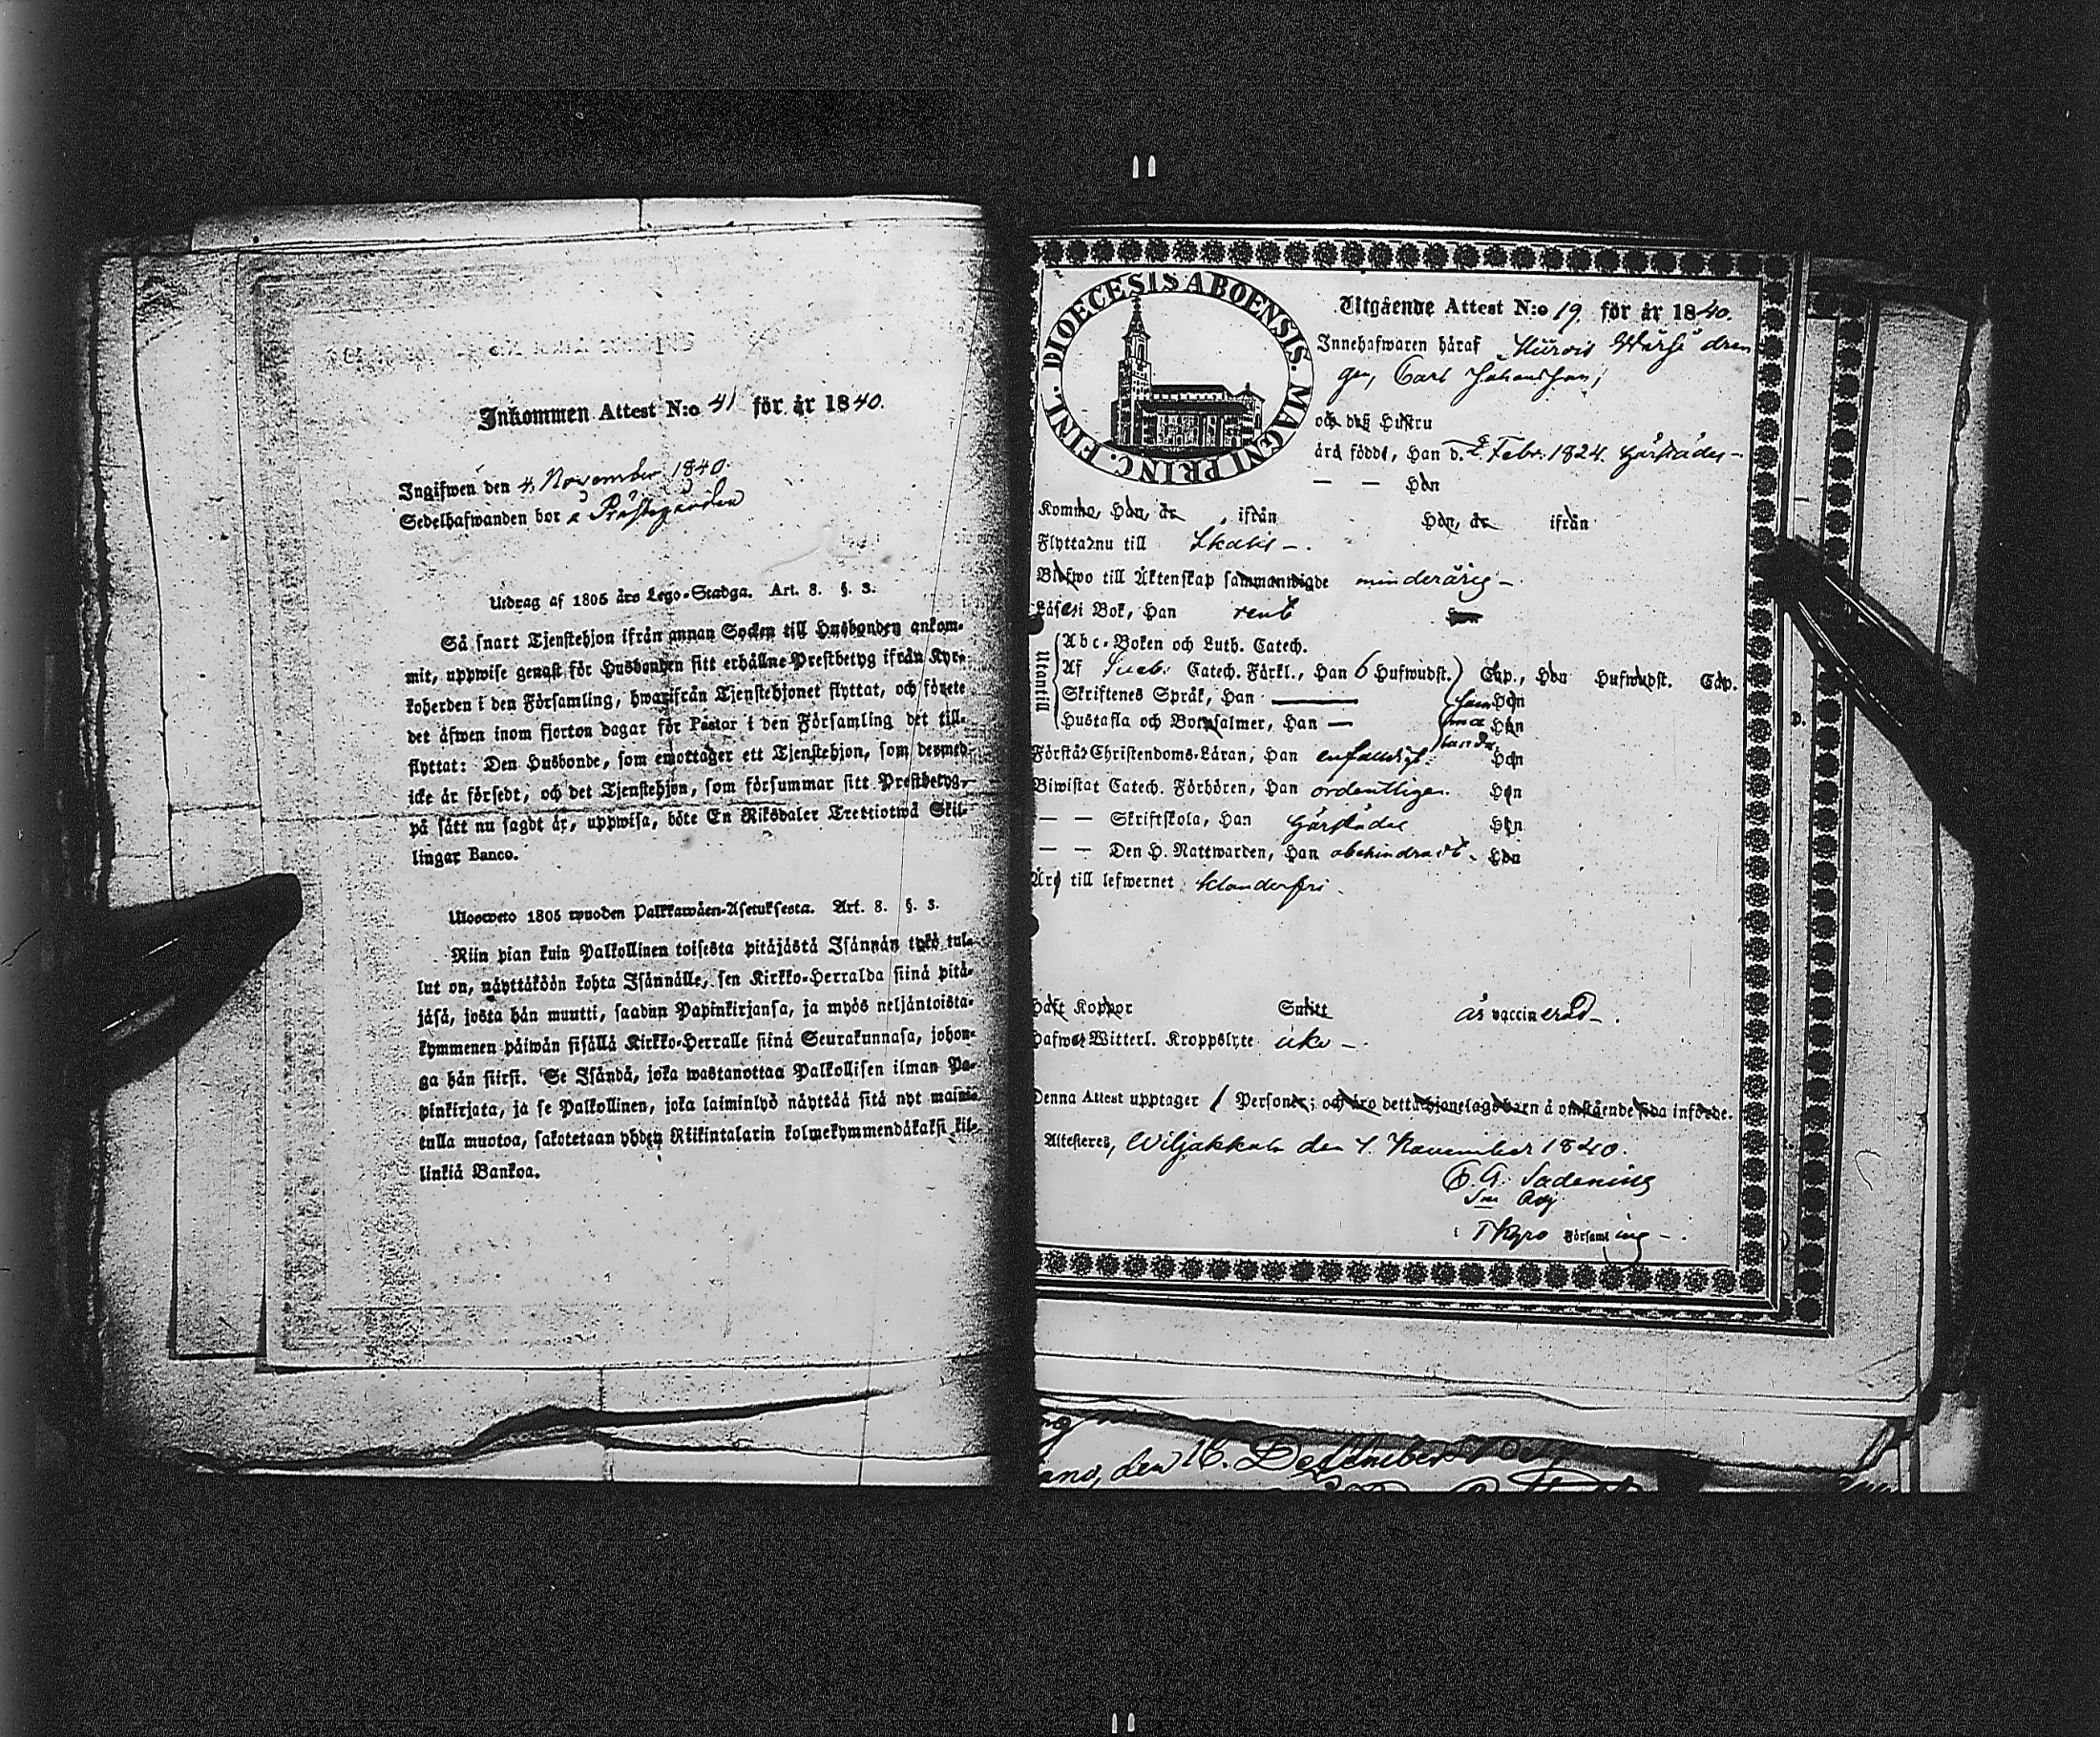 Inkommen Attest N:o 41 för år 1840.
Ingifwen den 4. November 1840.
Sedelhafwanden bor å Prästgården
Utdrag af 1805 års Lego-Stadga. Art. 8. §. 3.
Så snart Tjenstehjon ifrån annan Socken till Husbonden ankom-
mit, uppwise genast för Husbonden sitt erhållne Prestbetyg ifrån Kyr-
koherden i den Församling, hwarifrån Tjenstehjonet flyttat, och förete
det äfwen inom fjorton dagar för Pastor i den Församling det till-
flyttat: Den Husbonde, som emottager ett Tjenstehjon, som dermed
icke är försedt, och det Tjenstehjon, som försummar sitt Prestbetyg,
på sätt nu sagdt är, uppwisa, böte En Riksdaler Trettiotwå Skil-
lingar Banco.
Ulosweto 1805 wuoden Palkkawäen-Asetuksesta. Art. 8. §. 3.
Niin pian kuin Palkollinen toisesta pitäjästä Isännän tykö tul-
lut on, näyttäköön kohta Isännälle, sen Kirkko-Herralda siinä pitä-
jäsä, josta hän muutti, saadun Papinkirjansa, ja myös neljäntoista-
kymmenen päiwän sisällä Kirkko-Herralle siinä Seurakunnasa, johon-
ga hän siirsi. Se Isändä, joka wastanottaa Palkollisen ilman Pa-
pinkirjata, ja se Palkollinen, joka laiminlyö näyttää sitä nyt mainit-
tulla muotoa, sakotetaan yhden Riikintalarin kolmekymmendäkaksi kil-
linkiä Bankoa.
DIOECESIS ABOENSIS. MAGNI PRINC. FINL.
Utgående Attest N:o 19. för år 1840.
Innehafwaren häraf dren
gen, Carl Johansson;
och deß Hustru
äro född, Han d. 2 Febr. 1824. härstädes -
— — Hon
Komne, Han, år ifrån Hon, år ifrån
Flytta nu till Skakis -.
Blefwo till Äktenskap sammanwigde minderårig -
Läser i Bok, Han rent Hon
Utantill
Abc-Boken och Luth. Catech.
Af Sveb: Catech. Förkl., Han 6 Hufwudst. Cap., Hon Hufwudst. Cap.
Skriftenes Språk, Han — Hon
Hustafla och Botpsalmer, Han — Hon
Förstår Christendoms-Läran, Han enfaldigt. Hon
Biwistat Catech. Förhören, Han ordentligen. Hon
— — Skriftskola, Han härstädes Hon
— — Den H. Nattwarden, Han obehindradt. Hon
Äro till lefwernet klanderfri.
Haft Koppor Switt är vaccinerad -.
Hafwer Witterl. Kroppslyte icke -.
Denna Attest upptager 1 Personer; och äro dettas hjonelags barn å omstående sida införde.
Attesteres, Wiljakkala den 1. November 1840.
Adj
i TKyro Församling -.
den 16. December